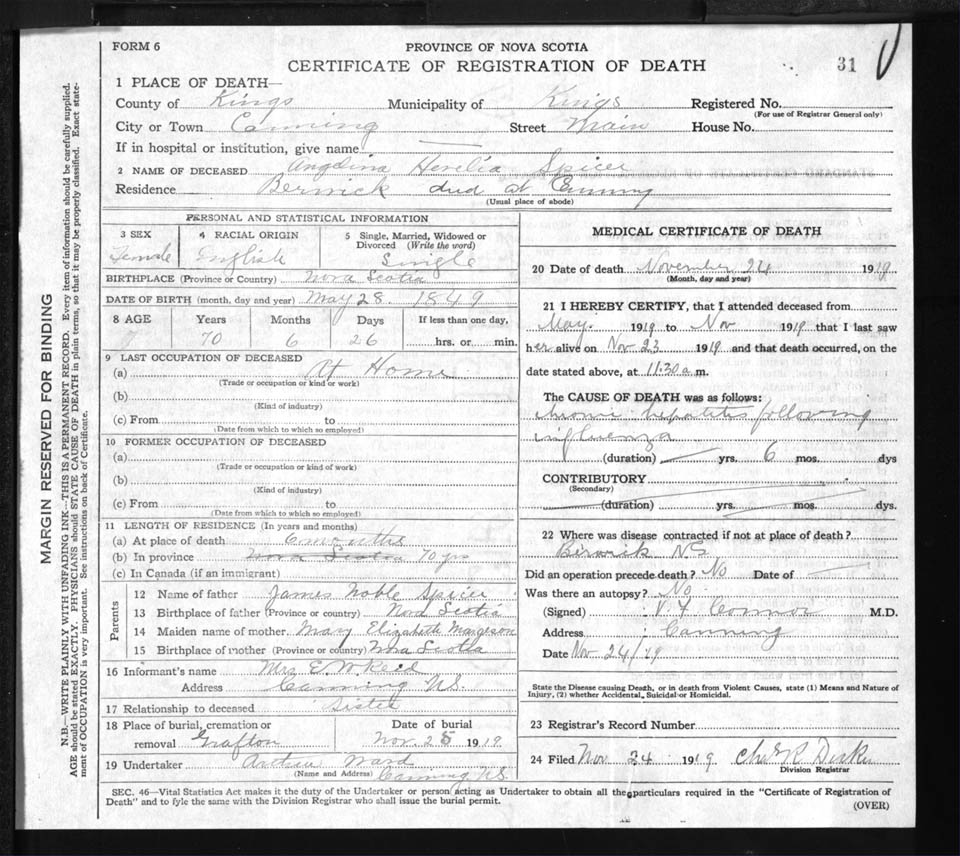 FORM 6
PROVINCE OF NOVA SCOTIA
CERTIFICATE OF REGISTRATION OF DEATH
31
MARGIN RESERVED FOR BINDING
N.B.—WRITE PLAINLY WITH UNFADING INK—THIS IS A PERMANENT RECORD. Every item of information should be carefully supplied.
AGE should be stated EXACTLY. PHYSICIANS should STATE CAUSE OF DEATH in plain terms, so that it may be properly classified. Exact state-
ment of OCCUPATION is very important. See instructions on back of Certificate.
1 PLACE OF DEATH—
County of Kings Municipality of Kings Registered No.
(For use of Registrar General only)
City or Town Canning Street Main House No.
If in hospital or institution, give name —
2 NAME OF DECEASED Spicer
Residence Berwick died at Canning
(Usual place of abode)
PERSONAL AND STATISTICAL INFORMATION
3 SEX 4 RACIAL ORIGIN 5 Single, Married, Widowed or
Divorced (Write the word)
Female English Single
BIRTHPLACE (Province or Country) Nova Scotia
DATE OF BIRTH (month, day and year) May 28 1849
8 AGE Years Months Days If less than one day,
70 6 26 hrs. or min.
9 LAST OCCUPATION OF DECEASED
(a) At Home
(Trade or occupation or kind or work)
(b)
(Kind of industry)
(c) From to
(Date from which to which so employed)
10 FORMER OCCUPATION OF DECEASED
(a)
(Trade or occupation or kind of work)
(b)
(Kind of industry)
(c) From to
(Date from which to which so employed)
11 LENGTH OF RESIDENCE (In years and months)
(a) At place of death 6 months
(b) In province Nova Scotia 70 yrs
(c) In Canada (if an immigrant)
Parents
12 Name of father James Noble Spicer
13 Birthplace of father (Province or country) Nova Scotia
14 Maiden name of mother Mary Elizabeth Margeson
15 Birthplace of mother (Province or country) Nova Scotia
16 Informant's name Mrs E. W. Reid
Address Canning N.S.
17 Relationship to deceased Sister
18 Place of burial, cremation or Date of burial
removal Grafton Nov. 25 1919
19 Undertaker Ward
(Name and Address) Canning N.S.
MEDICAL CERTIFICATE OF DEATH
20 Date of death November 24 1919
(Month, day and year)
21 I HEREBY CERTIFY, that I attended deceased from
May. 1919 to Nov 1919 that I last saw
her alive on Nov 23 1919 and that death occurred, on the
date stated above, at 11.30 a.m.
The CAUSE OF DEATH was as follows:
chronic hepatitis following
influenza
(duration) — yrs. 6 mos. dys
CONTRIBUTORY
(Secondary)
(duration) yrs. mos. dys.
22 Where was disease contracted if not at place of death?
Berwick NS
Did an operation precede death? No Date of —
Was there an autopsy? No
(Signed) Connor M.D.
Address Canning
Date Nov 24/19
State the Disease causing Death, or in death from Violent Causes, state (1) Means and Nature of
Injury, (2) whether Accidental, Suicidal or Homicidal.
23 Registrar's Record Number
24 Filed Nov. 24 1919
Division Registrar
SEC. 46—Vital Statistics Act makes it the duty of the Undertaker or person acting as Undertaker to obtain all the particulars required in the "Certificate of Registration of
Death" and to fyle the same with the Division Registrar who shall issue the burial permit.
(OVER)